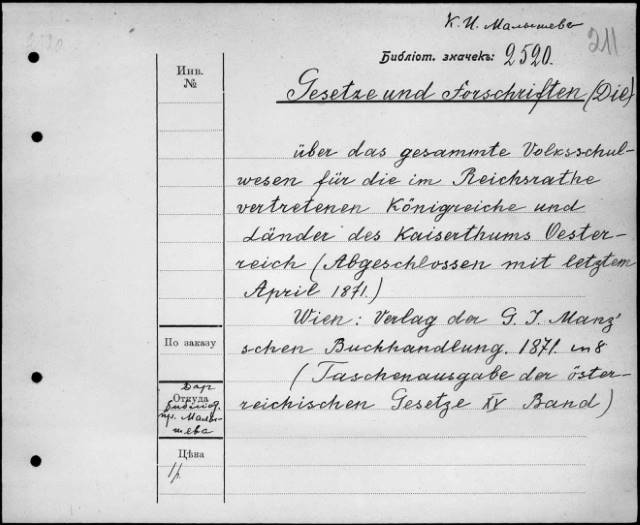 К. И. Малышева
211
2520
Библіот. значекъ: 2520.
Инв.
№
Gesetze und Forschriften (Die)
über das gesammte Volksschul-
wesen für die im Reichsrathe
vertretenen Königreiche und
Länder des Kaiserthums Oester-
reich (Abgeschlossen mit letztem
April 1871.)
Wien: Verlag der G. J. Manz'
schen Buchhandlung. 1871. in 8
(Taschenausgabe der öster-
reichischen Gesetze XV Band)
По заказу
Откуда
Дар
библіот.
пр. Малы-
шева
Цѣна
1 р.